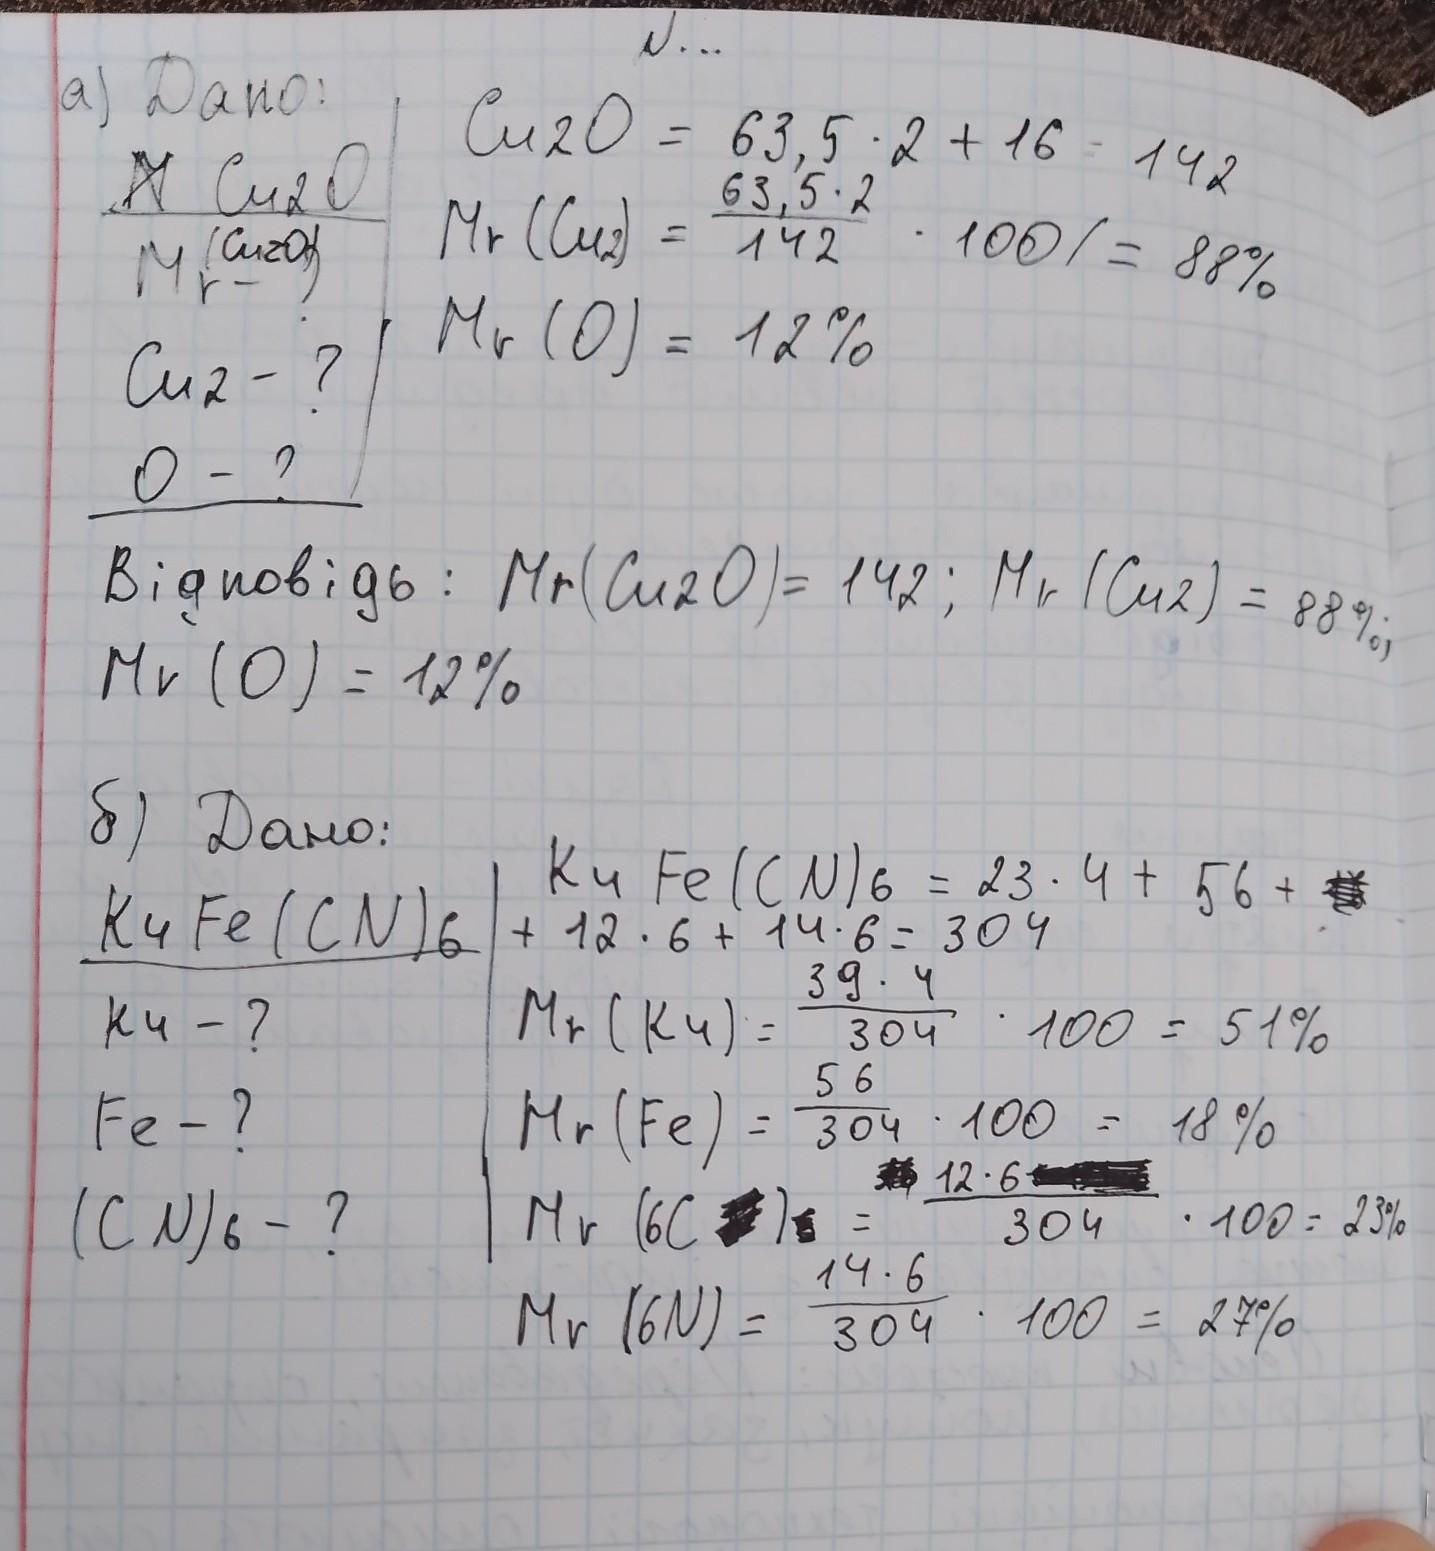 N...
а) Дано:
Cu2O
Mr (Cu2O) - ?
Cu2 - ?
O - ?
Cu2O = 63,5 · 2 + 16 = 142
Mr (Cu2) = 63,5 · 2 / 142 · 100 / = 88%
Mr (O) = 12%
Відповідь: Mr(Cu2O) = 142; Mr (Cu2) = 88%;
Mr (O) = 12%
б) Дано:
K4 Fe(CN)6
K4 - ?
Fe - ?
(CN)6 - ?
K4 Fe(CN)6 = 23 · 4 + 56 +
+ 12 · 6 + 14 · 6 = 304
Mr (K4) = 39 · 4 / 304 · 100 = 51%
Mr (Fe) = 56 / 304 · 100 = 18%
Mr (6C) = 12 · 6 / 304 · 100 = 23%
Mr (6N) = 14 · 6 / 304 · 100 = 27%